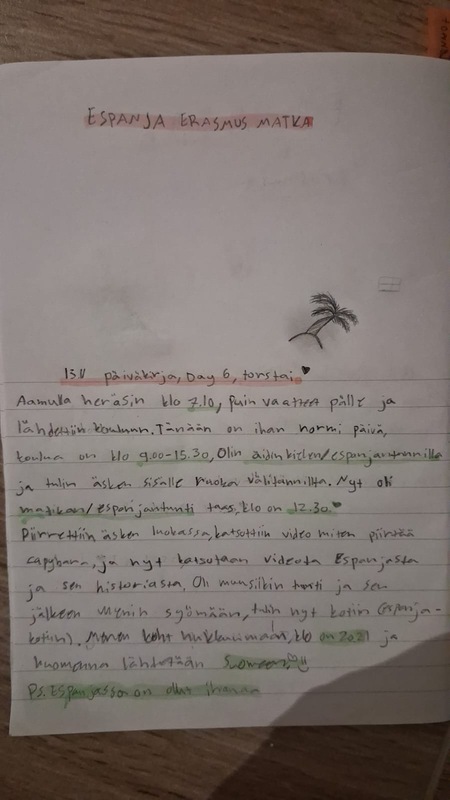 ESPANJA ERASMUS MATKA
päiväkirja, Day 6, torstai ♥
Aamulla heräsin klo 7.10, puin vaatteet pälle ja
lähdettiin kouluun. Tänään on ihan normi päivä,
koulua on klo 9.00-15.30, Olin äidinkielen/espanjantunnilla
ja tulin äsken sisälle ruoka välitunnilta. Nyt oli
matikan/espanjantunti taas, klo on 12.30. ♥
Piirrettiin äsken luokassa, katsottiin video miten piirtää
capybara, ja nyt katsotaan videota Espanjasta
ja sen historiasta. Oli musiikin tunti ja sen
jälkeen menin syömään, tulin nyt kotiin (espanja-
kotiin). Menen koht nukkumaan, klo on 20.21 ja
huomenna lähdetään Suomeen.
Ps. Espanjassa on ollut ihanaa